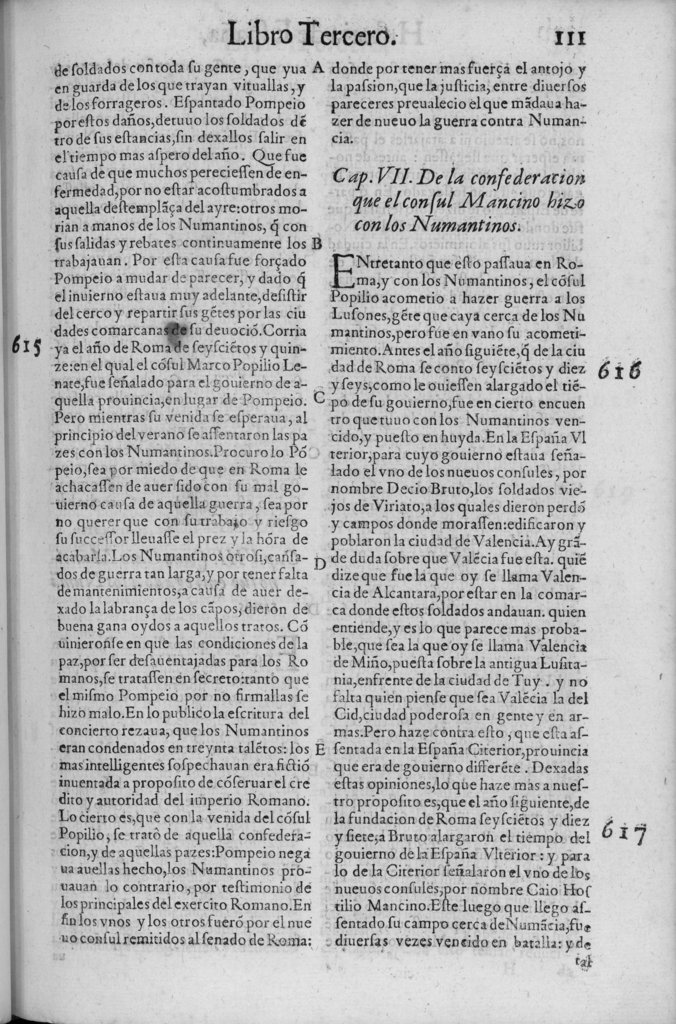 Libro Tercero. 111
de soldados con toda su gente, que yua
en guarda de los que trayan vituallas, y
de los forrageros. Espantado Pompeio
por estos daños, detuuo los soldados dẽ
tro de sus estancias, sin dexallos salir en
el tiempo mas aspero del año. Que fue
causa de que muchos pereciessen de en-
fermedad, por no estar acostumbrados a
aquella destemplãça del ayre: otros mo-
rian a manos de los Numantinos, q̃ con
sus salidas y rebates continuamente los
trabajauan. Por esta causa fue forçado
Pompeio a mudar de parecer, y dado q̃
el inuierno estaua muy adelante, desistir
del cerco y repartir sus gẽtes por las ciu
dades comarcanas de su deuociõ. Corria
ya el año de Roma de seysciẽtos y quin-
ze: en el qual el cõsul Marco Popilio Le-
nate, fue señalado para el gouierno de a-
quella prouincia, en lugar de Pompeio.
Pero mientras su venida se esperaua, al
principio del verano se assentaron las pa
zes con los Numantinos. Procurolo Põ
peio, sea por miedo de que en Roma le
achacassen de auer sido con su mal go-
uierno causa de aquella guerra, sea por
no querer que con su trabajo y riesgo
su successor lleuasse el prez y la hõra de
acabarla. Los Numantinos otrosi, cansa-
dos de guerra tan larga, y por tener falta
de mantenimientos, a causa de auer de-
xado la labrança de los cãpos, dieron de
buena gana oydos a aquellos tratos. Cõ
uinieronse en que las condiciones de la
paz, por ser desauentajadas para los Ro
manos, se tratassen en secreto: tanto que
el mismo Pompeio por no firmallas se
hizo malo. En lo publico la escritura del
concierto rezaua, que los Numantinos
eran condenados en treynta talẽtos: los
mas inteligentes sospechauan era fictiõ
inuentada a proposito de cõseruar el cre
dito y autoridad del imperio Romano.
Lo cierto es, que con la venida del cõsul
Popilio, se tratò de aquella confedera-
cion, y de aquellas pazes: Pompeio nega
ua auellas hecho, los Numantinos pro-
uauan lo contrario, por testimonio de
los principales del exercito Romano. En
fin los vnos y los otros fuerõ por el nue
uo consul remitidos al senado de Roma:
615
A
B
C
D
E
donde por tener mas fuerça el antojo y
la passion, que la justicia, entre diuersos
pareceres preualecio el que mãdaua ha-
zer de nueuo la guerra contra Numan-
cia.
Cap. VII. De la confederacion
que el consul Mancino hizo
con los Numantinos.
ENtretanto que esto passaua en Ro-
ma, y con los Numantinos, el cõsul
Popilio acometio a hazer guerra a los
Lusones, gẽte que caya cerca de los Nu
mantinos, pero fue en vano su acometi-
miento. Antes el año siguiẽte, q̃ de la ciu
dad de Roma se conto seysciẽtos y diez
y seys, como le ouiessen alargado el tiẽ-
po de su gouierno, fue en cierto encuen
tro que tuuo con los Numantinos ven-
cido, y puesto en huyda. En la España Vl
terior, para cuyo gouierno estaua seña-
lado el vno de los nueuos consules, por
nombre Decio Bruto, los soldados vie-
jos de Viriato, a los quales dieron perdõ
y campos donde morassen: edificaron y
poblaron la ciudad de Valencia. Ay grã-
de duda sobre que Valẽcia fue esta. quiẽ
dize que fue la que oy se llama Valen-
cia de Alcantara, por estar en la comar-
ca donde estos soldados andauan. quien
entiende, y es lo que parece mas proba-
ble, que sea la que oy se llama Valencia
de Miño, puesta sobre la antigua Lusita-
nia, enfrente de la ciudad de Tuy. y no
falta quien piense que sea Valẽcia la del
Cid, ciudad poderosa en gente y en ar-
mas. Pero haze contra esto, que esta as-
sentada en la España Citerior, prouincia
que era de gouierno differẽte. Dexadas
estas opiniones, lo que haze mas a nues-
tro proposito es, que el año siguiente, de
la fundacion de Roma seysciẽtos y diez
y siete, a Bruto alargaron el tiempo del
gouierno de la España Vlterior: y para
lo de la Citerior señalaron el vno de los
nueuos consules, por nombre Caio Hos
tilio Mancino. Este luego que llego as-
sentado su campo cerca de Numãcia, fue
diuersas vezes vencido en batalla: y de
tal
616
617